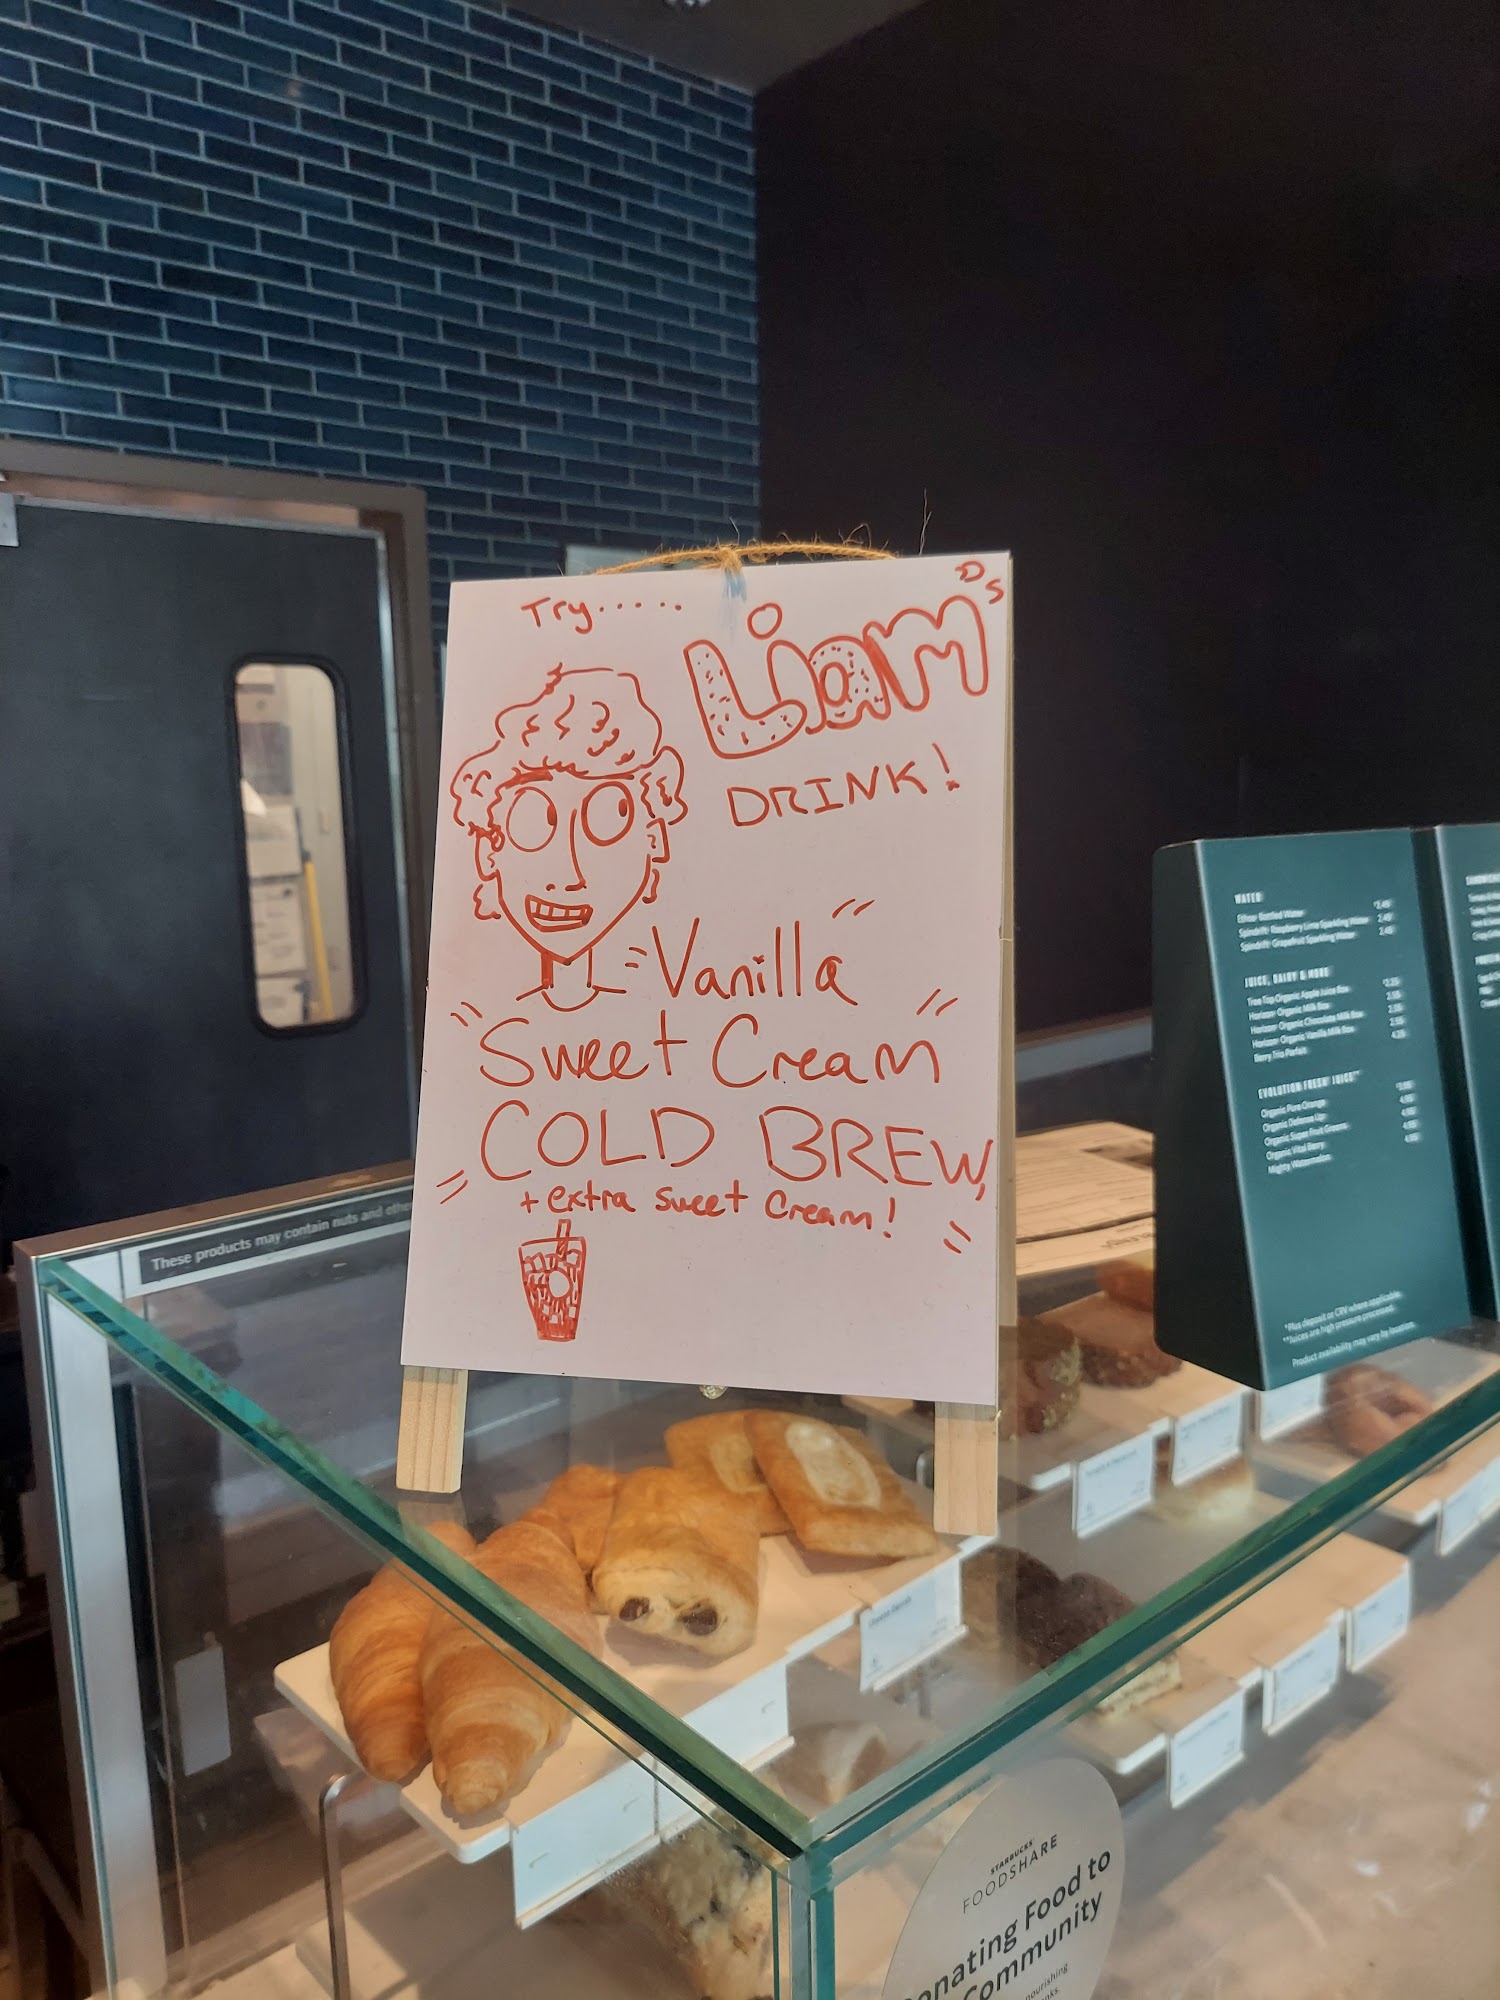 Try.....
Liam's
DRINK!
Vanilla
Sweet Cream
COLD BREW,
+ extra sweet cream!
These products may contain nuts and othe
WATER
Ethos Bottled Water
Spindrift Raspberry Lime Sparkling Water
Spindrift Grapefruit Sparkling Water
JUICE, DAIRY & MORE
Tree Top Organic Apple Juice Box
Horizon Organic Milk Box
Horizon Organic Chocolate Milk Box
Horizon Organic Vanilla Milk Box
Berry Trio Parfait
EVOLUTION FRESH JUICE**
Organic Pure Orange
Organic Defense Up
Organic Super Fruit Greens
Organic Vital Berry
Mighty Watermelon
*Plus deposit or CRV where applicable.
**Juices are high pressure processed.
Product availability may vary by location.
STARBUCKS
FOODSHARE
onating Food to
Community